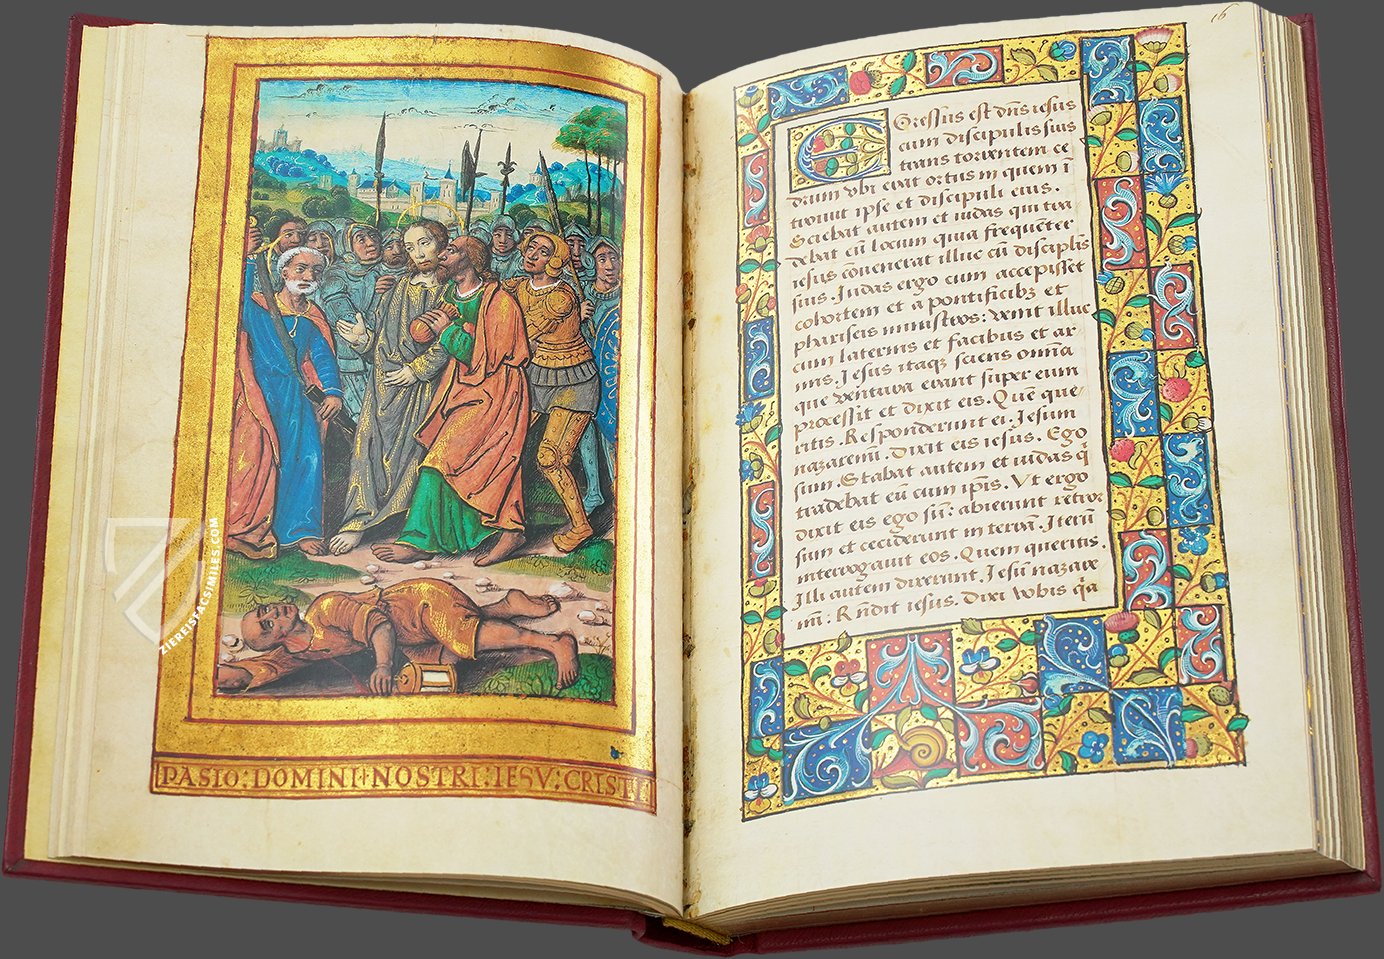 PASIO : DOMINI NOSTRI : IESV : CRISTI
ZIEREISFACSIMILES.COM
16
Egressus est dñs iesus
cum discipulis suis
trans torrentem ce
drum vbi erat ortus in quem ĩ
troiuit ipse et discipuli eius.
Sciebat autem et iudas qui tra
debat eũ locum quia frequẽter
iesus cõuenerat illuc cũ discipĩs
suis. Iudas ergo cum accepisset
cohortem et a pontificibꝫ et
phariseis ministros: venit illuc
cum laternis et facibus et ar
mis. Iesus itaqꝫ sciens omnia
que ventura erant super eum
processit et dixit eis. Quẽ que
ritis. Responderunt ei. Iesum
nazarenũ. Dixit eis iesus. Ego
sum. Stabat autem et iudas q̃
tradebat eũ cum ip̃is. Vt ergo
dixit eis ego sũ: abierunt retror
sum et ceciderunt in terrã. Iterũ
interrogauit eos. Quem queritis.
Illi autem dixerunt. Iesũ nazare
nũ: Rñdit iesus. Dixi vobis q̃a